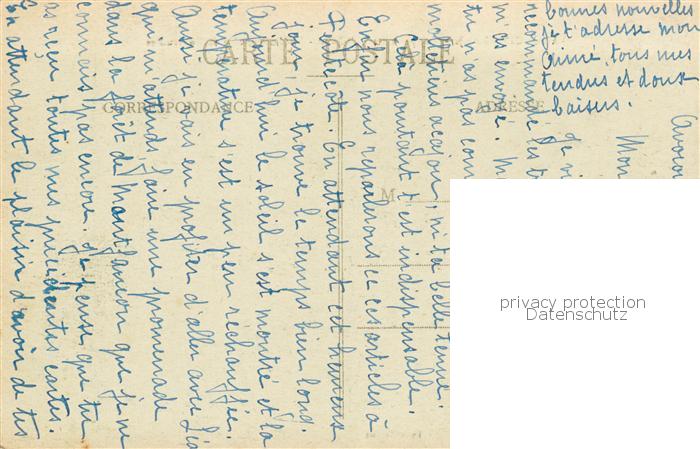 CARTE POSTALE
CORRESPONDANCE
ADRESSE
M
Mon
je
recommande
m'as envoyé. M
tu n'as pas
ni ta belle tenue.
Cela pourtant t'est indispensable.
Enfin nous reparlerons de ces articles à
En attendant cet heureux
jour je trouve le temps bien long.
Aujourd'hui le soleil s'est montré et la
température s'est un peu réchauffée.
Aussi je vais en profiter d'aller avec Léa
qui m'attend, faire une promenade
dans la forêt de que je ne
connais pas encore. Je pense que tu
as reçu toutes mes précédentes cartes.
En attendant le plaisir d'avoir de tes
bonnes nouvelles
je t'adresse mon
aimé, tous mes
tendres et doux
baisers.
privacy protection
Datenschutz